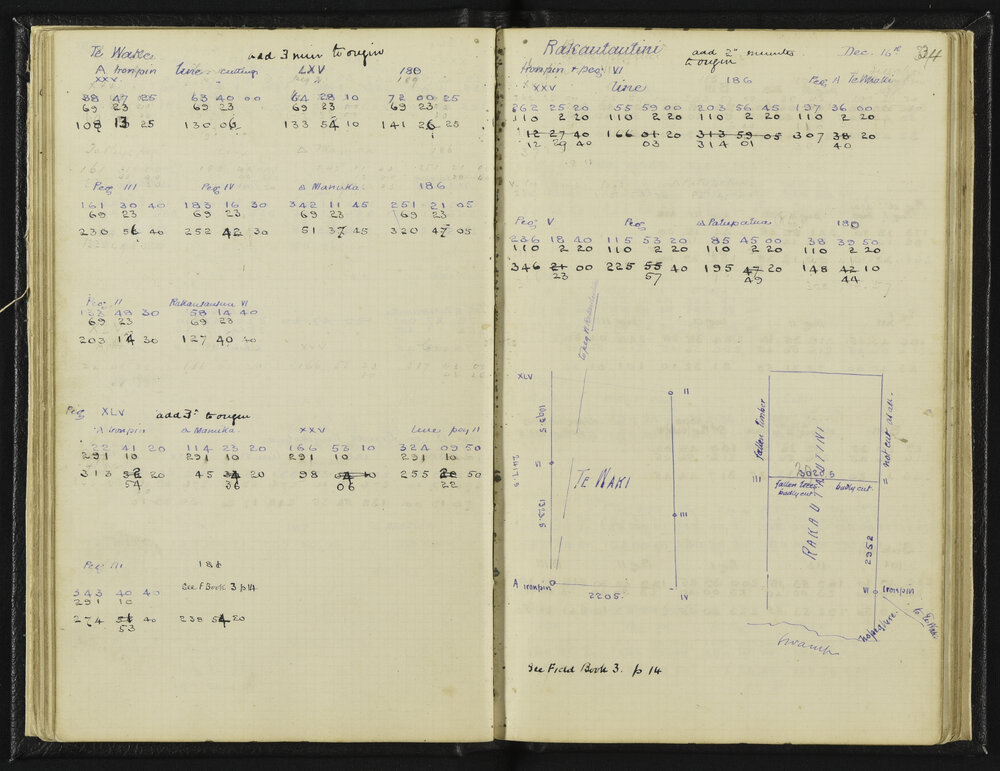 Te Waki add 3 min to origin
A Ironpin line cutting LXV 180
XXV
38 47 25 63 40 00 64 28 10 72 00 25
69 23 69 23 69 23 69 23
108 13 25 130 06 133 54 10 141 26 25
Peg III Peg IV △ Manuka 186
161 30 40 183 16 30 342 11 45 251 21 05
69 23 69 23 69 23 69 23
230 56 40 252 42 30 51 37 45 320 47 05
Peg II Rakautautini VI
48 30 58 14 40
69 23 69 23
203 14 30 127 40 40
Peg XLV add 3" to origin
A Ironpin △ Manuka XXV line peg II
22 41 20 114 23 20 166 53 10 324 09 50
291 10 291 10 291 10 291 10
313 52 20 45 34 20 98 04 10 255 20 50
54 36 06 22
Peg III 186
343 40 40 See F Book 3 p 14
291 10
274 51 40 238 54 20
53
34
Rakautautini add 2" minutes to origin Dec. 16th
Ironpin & peg VI 186 Peg A Te Waki
XXV line
262 25 20 55 59 00 203 56 45 197 36 00
110 2 20 110 2 20 110 2 20 110 2 20
12 27 40 166 01 20 313 59 05 307 38 20
12 29 40 03 314 01 40
Peg V Peg △ Patupatua 180
236 18 40 115 53 20 85 45 00 38 39 50
110 2 20 110 2 20 110 2 20 110 2 20
346 21 00 225 55 40 195 47 20 148 42 10
23 57 49 44
to peg VI
XLV
II
1093.5
2417.3
1323.5
TE WAKI
III
A Ironpin
2205
IV
fallen timber
not cut at all
III
3028.5
fallen trees
badly cut
badly cut
II
RAKAUTAUTINI
2952
VI Ironpin
no peg here
to Te Waki
Swamp
See Field Book 3. p 14